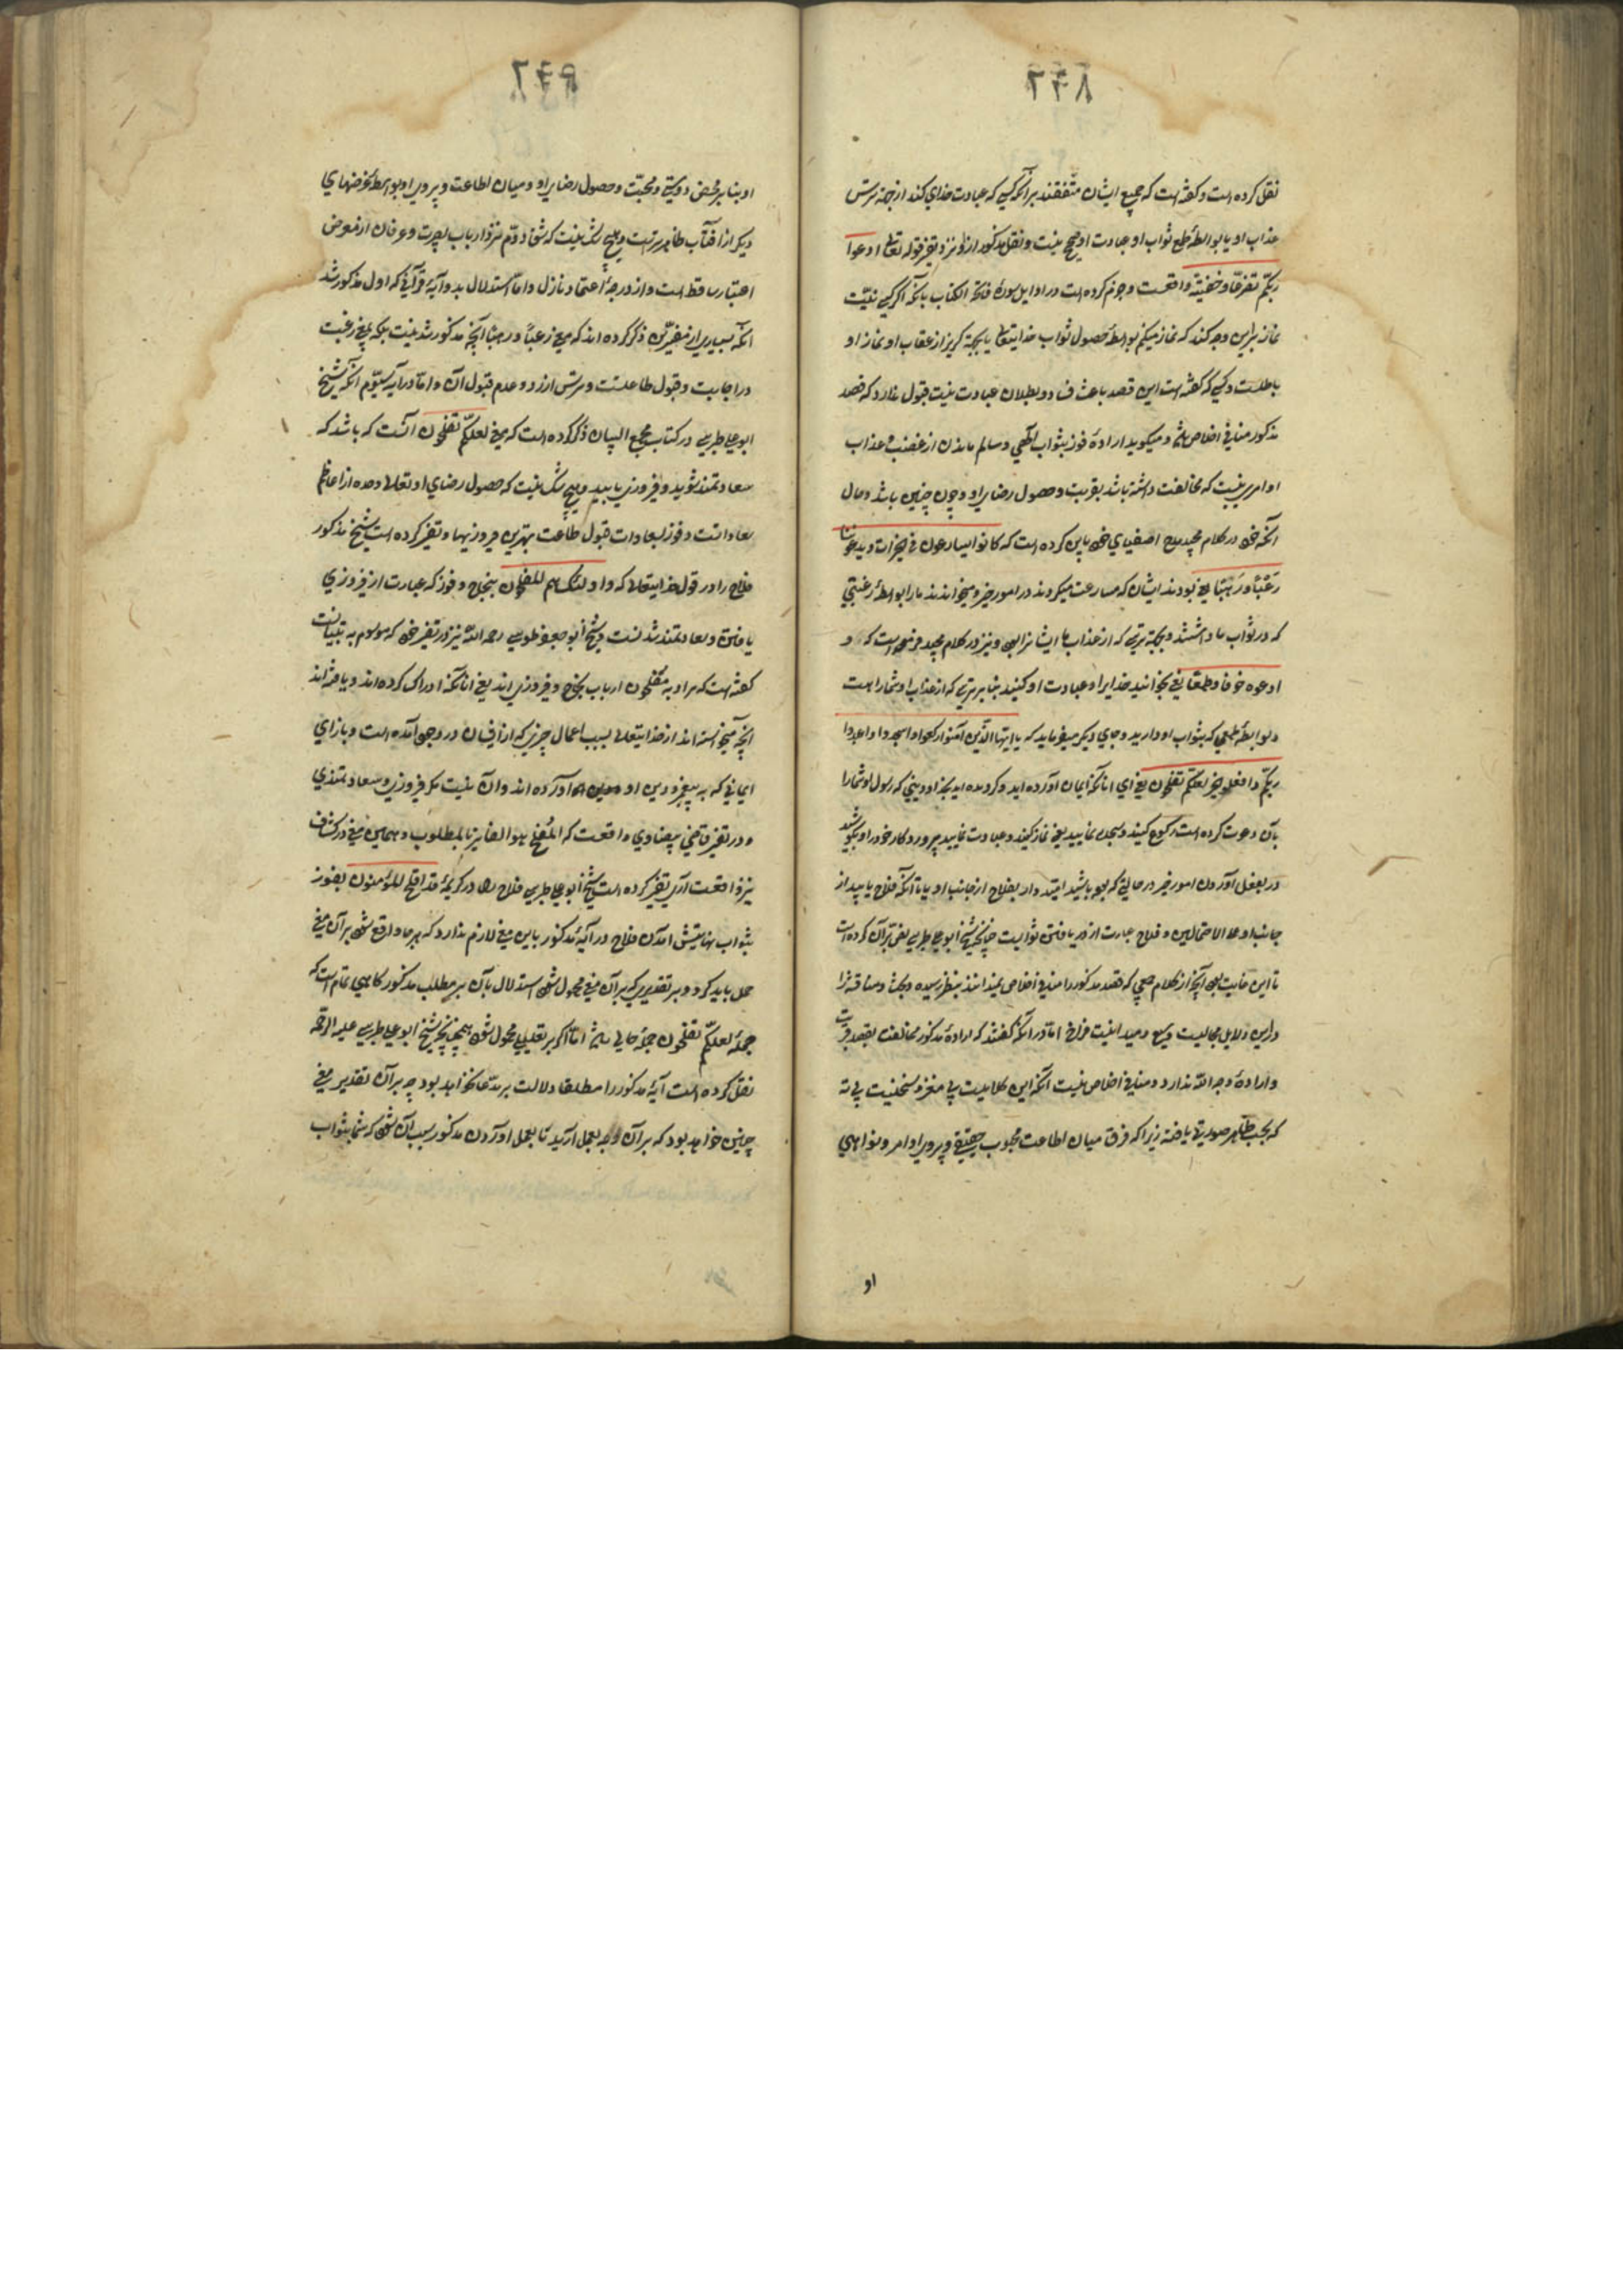 نقل کرده است و گفته است که جمیع ایشان متفقند بر آنکه کسی که عبادت خدای کند از جهة ترس
عذاب او یا بواسطهٔ طمع ثواب او عبادت او صحیح نیست و نقل مذکور ازو نزد تفسیر قوله تعالی ادعوا
ربکم تضرعا وخفیة واقعست و جزم کرده است در اوایل سورهٔ فاتحة الکتاب بآنکه اگر کسی نیت
نماز برین وجه کند که نماز میکنم بواسطهٔ حصول ثواب خدایتعالی یا بجهة گریز از عقاب او نماز او
باطلست و کسی که گفته است این قصد باعث فساد و بطلان عبادت نیست قبول ندارد که قصد
مذکور منافی اخلاص باشد و میگوید ارادهٔ فوز بثواب الهی و سالم ماندن از غضب و عذاب
او امری نیست که مخالفت داشته باشد بقربت و حصول رضای او و چون چنین باشد و حال
آنکه حق در کلام مجید مدح اصفیای خود باین کرده است که کانوا یسارعون فی الخیرات ویدعوننا
رغبًا ورهبًا یعنی بودند ایشان که مسارعت میکردند در امور خیر و میخواندند ما را بواسطهٔ رغبتی
که در ثواب ما داشتند و بجهة ترسی که از عذاب ما ایشانرا بود و نیز در کلام مجید فرموده است که و
ادعوه خوفا وطمعا یعنی بخوانید خدایرا و عبادت او کنید بنابر ترسی که از عذاب او شما را هست
و بواسطهٔ طمعی که بثواب او دارید و جای دیگر میفرماید که یا ایها الذین آمنوا ارکعوا واسجدوا واعبدوا
ربکم وافعلوا الخیر لعلکم تفلحون یعنی ای آنانکه ایمان آورده اید و گرویده اید بخدا و دینی که رسول او شما را
بآن دعوت کرده است رکوع کنید و سجده نمایید یعنی نماز کنید و عبادت نمایید پروردگار خود را و بکوشید
در بفعل آوردن امور خیر در حالتی که بوده باشید امیدوار بفلاح از جانب او یا تا آنکه فلاح یابید از
جانب او علی الاحتمالین و فلاح عبارت از دریافتن ثوابست چنانچه شیخ ابوعلی طبرسی نص بر آن کرده است
تا این غایت بود آنچه از کلام جمعی که قصد مذکور را منافی اخلاص نمیدانند بنظر رسیده و بحث و مناقشه را
در این دلایل مجالیست وسیع و میدانیست فراخ اما در آنکه گفتند که ارادهٔ مذکور مخالفت بقصد قربت
و ارادهٔ وجه الله ندارد و منافی اخلاص نیست آنکه این کلامیست بی مغز و سخنیست بی ته
که بحسب ظاهر صورتی یافته زیرا که فرق میان اطاعت محبوب حقیقی و پیروی اوامر و نواهی
او
او بنابر محض دوستی و محبت و حصول رضای او و میان اطاعت و پیروی او بواسطهٔ غرضهای
دیگر از آفتاب ظاهرترست و هیچ شک نیست که شق دوم نزد ارباب بصیرت و عرفان از معرض
اعتبار ساقط است و از درجهٔ اعتماد نازل و اما استدلال بدو آیهٔ قرآنی که اول مذکور شد
آنکه بسیاری از مفسرین ذکر کرده اند که معنی رغبًا و رهبًا آنچه مذکور شد نیست بلکه بمعنی رغبت
در اجابت و قبول طاعتست و ترس از رد و عدم قبول آن و اما در آیه سیوم آنکه شیخ
ابوعلی طبرسی در کتاب مجمع البیان ذکر کرده است که معنی لعلکم تفلحون آنست که باشد که
سعادتمند شوید و فیروزی یابید و هیچ شک نیست که حصول رضای او تعالی وحده از اعاظم
سعاداتست و فوز بسعادت قبول طاعت بهترین فیروزیها و تفسیر کرده است شیخ مذکور
فلاح را در قول خدایتعالی که و اولئک هم المفلحون بنجاح و فوز که عبارت از فیروزی
یافتن و سعادتمند شدنست و شیخ ابو جعفر طوسی رحمه الله نیز در تفسیر خود که موسوم به تبیانست
گفته است که مراد به مفلحون ارباب نجاح و فیروزی اند یعنی آنانکه ادراک کرده اند و یافته اند
آنچه میخواسته اند از خدایتعالی بسبب اعمال چیزی که از ایشان در وجود آمده است و بازای
ایمانی که به پیغمبر و دین او آورده اند و آن نیست مگر فیروزی و سعادتمندی
و در تفسیر قاضی بیضاوی واقعست که المفلح هو الفایز بالمطلوب و همین معنی در کشاف
نیز واقعست آری تفسیر کرده است شیخ ابوعلی طبرسی فلاح را در کریمهٔ قد افلح المؤمنون بفوز
بثواب نهایتش آمدن فلاح در آیهٔ مذکور باین معنی لازم ندارد که هر جا واقع شود بر آن معنی
حمل باید کرد و بر تقدیری که بر آن معنی محمول شود استدلال بآن بر مطلب مذکور گاهی تمام است که
جملهٔ لعلکم تفلحون جملهٔ حالی باشد اما اگر بر تعلیل محمول شود همچنانچه شیخ ابوعلی طبرسی علیه الرحمه
نقل کرده است آیهٔ مذکور را مطلقا دلالت بر مدعا نخواهد بود چه بر آن تقدیر معنی
چنین خواهد بود که بر آن وجه بعمل آرید تا بعمل آوردن مذکور سبب آن شود که شما بثواب